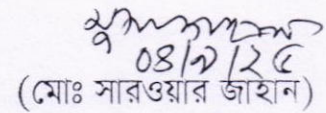 ০৪/৯/২৫
(মোঃ সারওয়ার জাহান)